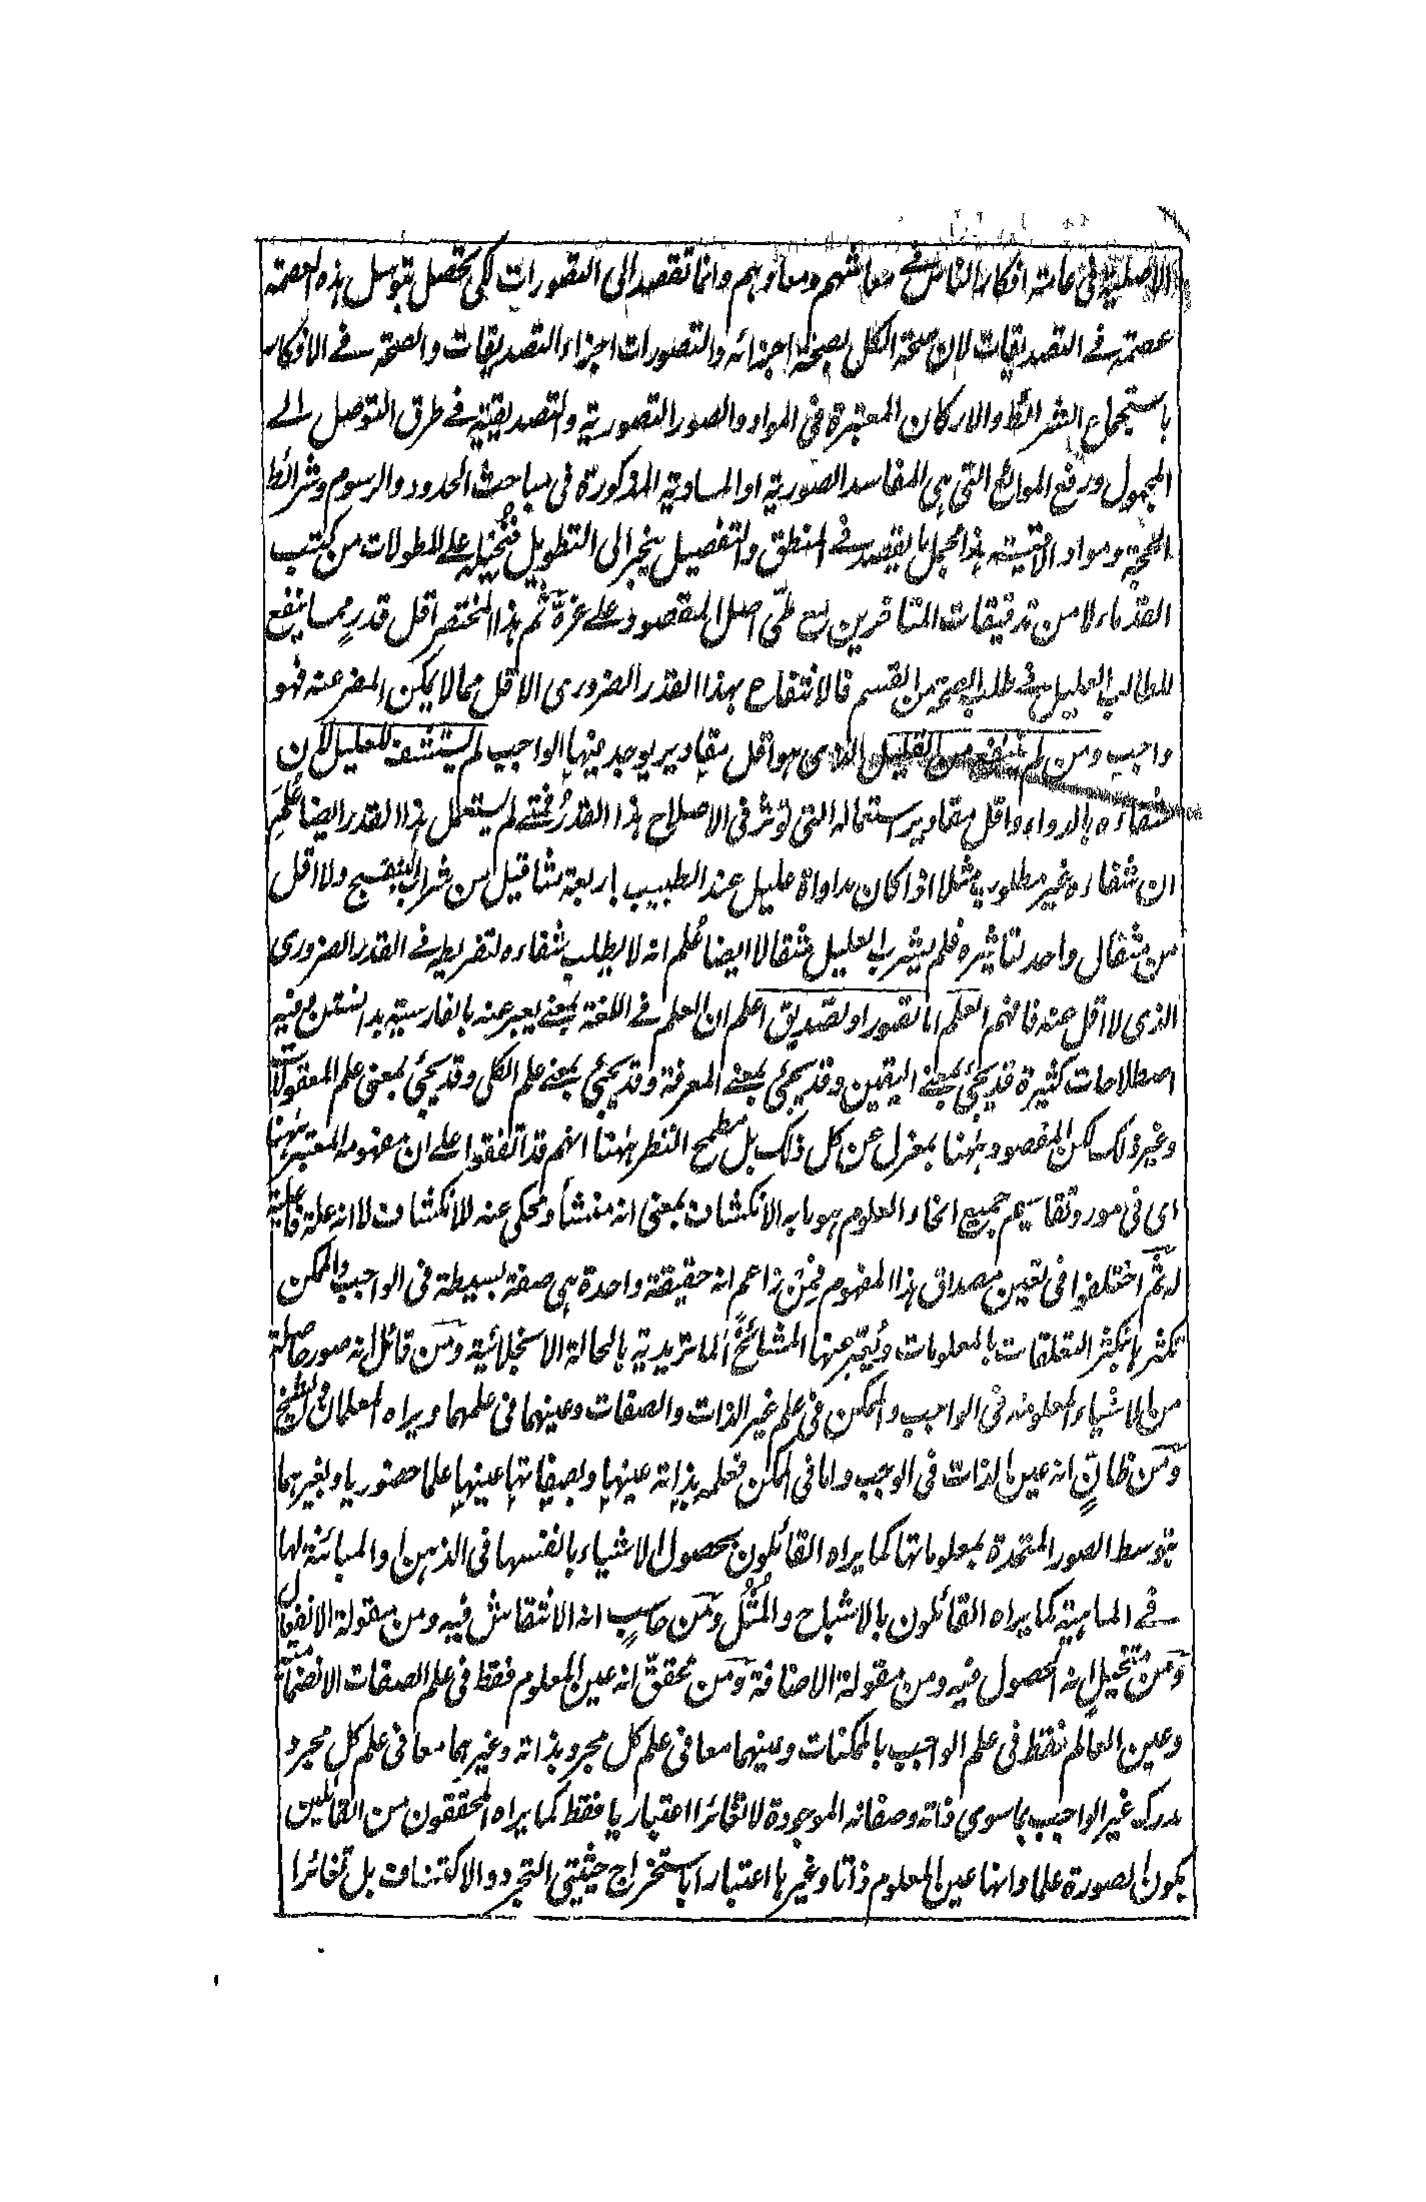 الاصلية فى عامة افكار الناس فى معاشهم ومعادهم وانما تقصد الى التصورات لكى تحصل بتوسل هذه العصمة
عصمة فى التصديقات لان صحة الكل بصحة اجزائه والتصورات اجزاء التصديقات والصحة فى الافكار
باستجماع الشرائط والاركان المعتبرة فى المواد والصور التصورية والتصديقية فى طرق التوصل الى
المجهول ورفع الموانع التى هى المفاسد الصورية او المادية المذكورة فى مباحث الحدود والرسوم وشرائط
الحجة ومواد الاقيسة هذا مجمل ما يقصد فى المنطق والتفصيل ينجر الى التطويل على المطولات من كتب
القدماء لا من تدقيقات المتأخرين مع طى اصل المقصود على غرة ثم هذا المختصر اقل قدر مما ينفع
للطالب العليل فى طلب الصحة من القسم فالانتفاع بهذا القدر الضرورى الاقل مما لا يمكن المضر عنه فهو
واجب ومن لم ينتفع من القليل الذى هو اقل مقادير يوجد فيها الواجب لم يستشف للعليل لان
شفاءه بالدواء واقل مقادير استعماله التى تؤثر فى الاصلاح هذا القدر فمتى لم يستعمل هذا القدر ايضا علم
ان شفاءه غير مطلوب مثلا اذا كان مداواة عليل عند الطبيب باربعة مثاقيل من شراب البنفسج ولا اقل
من مثقال واحد لتاثيره فلم يشرب العليل مثقالا ايضا علم انه لا يطلب شفاءه لتفريطه فى القدر الضرورى
الذى لا اقل عنه فافهم العلم اما تصور او تصديق اعلم ان العلم فى اللغة بمعنى يعبر عنه بالفارسية بدانستن وفيه
اصطلاحات كثيرة قد يجئ بمعنى اليقين وقد يجئ بمعنى المعرفة وقد يجئ بمعنى علم الكلى وقد يجئ بمعنى علم المعقولات
وغير ذلك لكن المقصود ههنا بمعزل عن كل ذلك بل مطمح النظر ههنا انهم قد اتفقوا على ان مفهومه المعتبر ههنا
اى فى مورد تقاسيم جميع انحاء العلوم هو ما به الانكشاف بمعنى انه منشأ ومحكى عنه للانكشاف لا انه علة فاعلية
له ثم اختلفوا فى تعين مصداق هذا المفهوم فمن زاعم انه حقيقة واحدة هى صفة بسيطة فى الواجب والممكن
تكثرها بتكثر التعلقات بالمعلومات ويعبر عنها المشائخ الماتريدية بالحالة الانجلائية ومن قائل انه صور حاصلة
من الاشياء المعلومة فى الواجب والممكن فى علم غير الذات والصفات وعينهما فى علمهما ويراه المعلمان والشيخ
ومن ظان انه عين الذات فى الواجب واما فى الممكن فعلمه بذاته عينها وبصفاتها عينها علما حضوريا وبغيرهما
بتوسط الصور المتحدة بمعلوماتها كما يراه القائلون بحصول الاشياء بانفسها فى الذهن او المبائنة لها
فى الماهية كما يراه القائلون بالاشباح والمثل ومن حاسب انه الانتقاش فيه ومن مقولة الانفعال
ومن متخيل انه الحصول فيه ومن مقولة الاضافة ومن محقق انه عين المعلوم فقط فى علم الصفات الانضمامية
وعين العالم فقط فى علم الواجب بالممكنات وعينهما معا فى علم كل مجرد بذاته وغيرهما معا فى علم كل مجرد
مدرك غير الواجب بما سوى ذاته وصفاته الموجودة لا تغائرا اعتباريا فقط كما يراه المحققون من القائلين
بكون الصورة علما وانها عين المعلوم ذاتا وغيرها اعتبارا باستخراج حيثيتى التجرد والاكتناف بل تغائرا